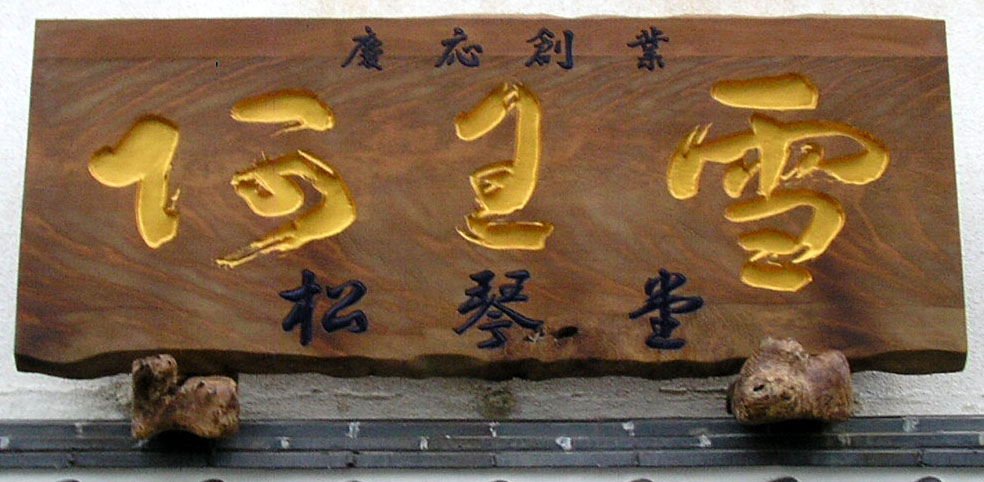 慶応創業
阿雪
松琴堂